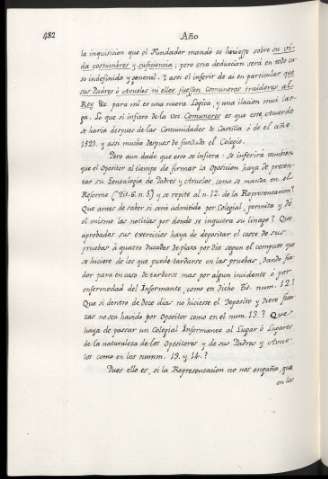 482 Año
la inquisicion que el Fundador mandò se hiciesse sobre su vi-
da costumbres y suficiencia; pero esta deducion será en todo ca-
so indefinido y general. Y assi el inferir de aì en particular que
sus Padres ò Abuelos no ellos fuessen Comuneros traidores al
Rey &c para mi es una nueva Logica, y una ilacion mui lar-
ga. Lo que si infiero de la voz Comuneros es que este acuerdo
se haria despues de las Comunidades de Castilla ò de el año
1521. y assi mucho despues de fundado el Colegio.
Pero aun dado que esto se infiera: Se inferirá tambien
que el Opositor al tiempo de firmar la Oposicion haya de presen-
tar su Genealogia de Padres y Abuelos, como se manda en el
Reforme (Tit. 6. n. 5) y se repite al n. 12. de la Representacion?
Que antes de saber si será admitido por Colegial, permita y dè
el mismo las noticias por donde se inquiera su linage? Que
aprobados sus exercicios haya de depositar el coste de sus
pruebas à quatro Ducados de plata por Dia segun el computo que
se hiciere de los que puede tardarse en las pruebas, dando fia-
dor para en caso de tardarse mas por algun incidente ò por
enfermedad del Informante, como en dicho Tit. num. 12?
Que si dentro de Doce dias no hiciesse el Deposito y diere fian-
zas no sea havido por Opositor como en el num. 13.? Que
haya de passar un Colegial Informante al Lugar ò Lugares
de la naturaleza de los Opositores y de sus Padres y Abue-
los como en los numm. 13. y 14.?
Pues ello es, si la Representacion no nos engaña, que
en los